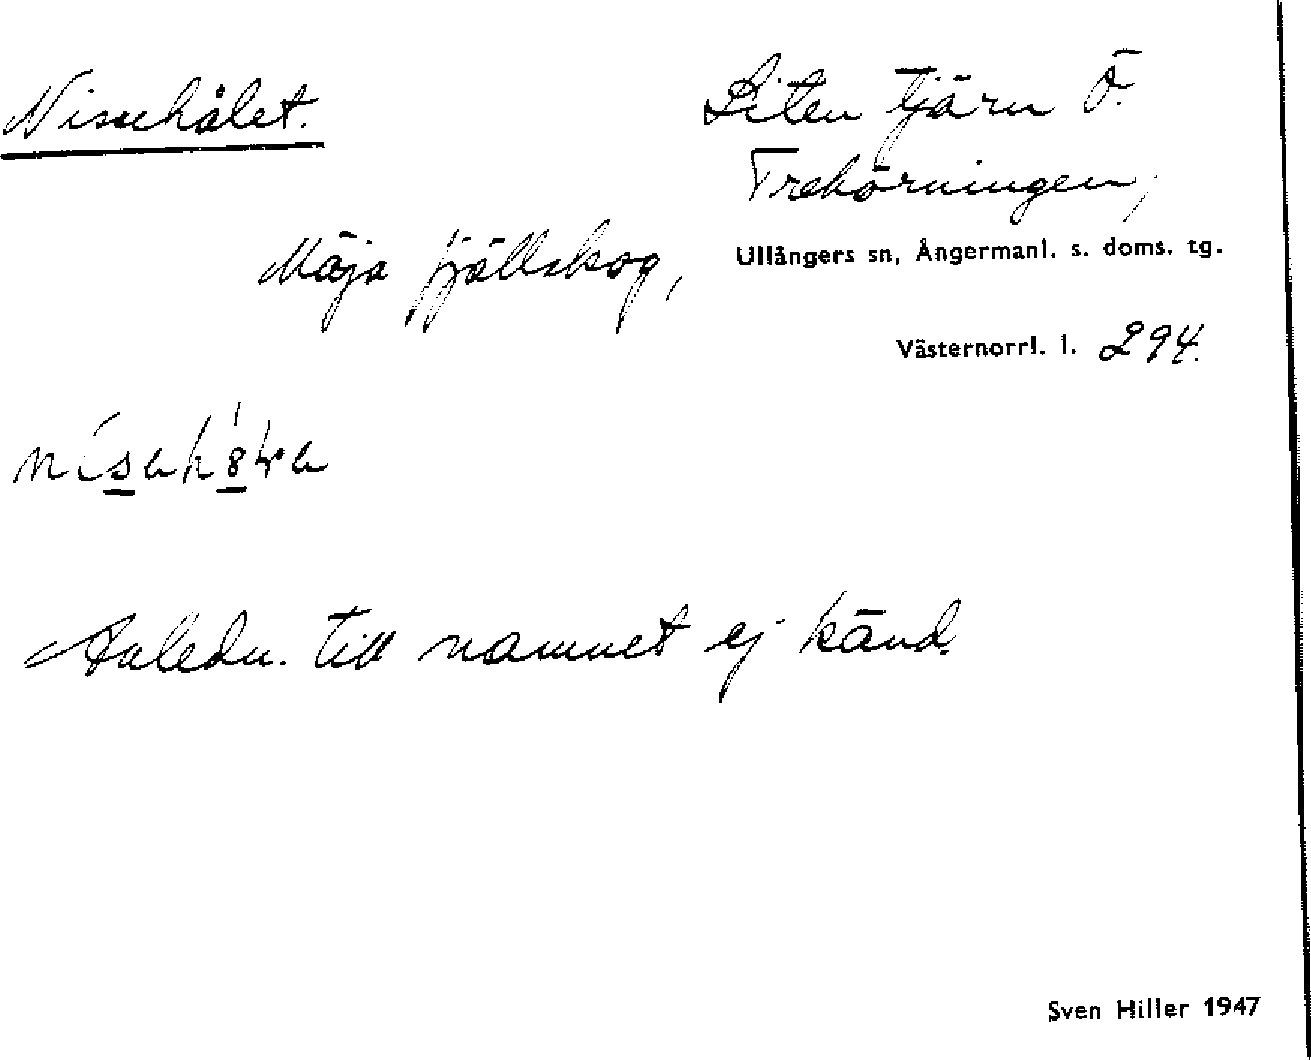 Nissehålet.
Liten tjärn Ö.
Trehörningen,
Mäja fjällskog,
Ullångers sn, Ångermanl. s. doms. tg.
Västernorrl. l. 294.
Anledn. till namnet ej känd.
Sven Hiller 1947